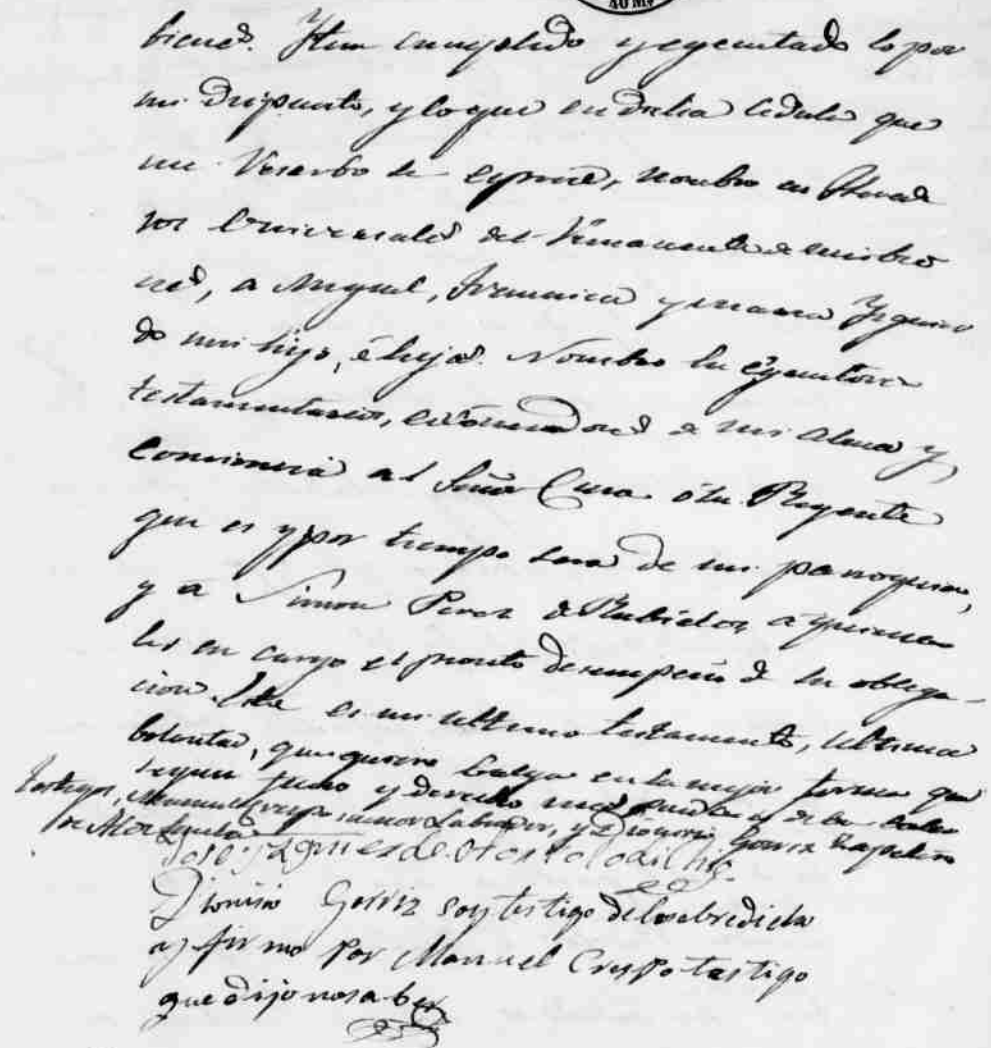 40 Ms
bienes. Item cumplido y egecutado lo por
mi dispuesto, y lo que en dicha cedula que
me reserbo se esprese, nombro en herede
ros universales del remanente de mis bie
nes, a Miguel, Francisca y maria Yzquier
do mi hijo, é hijas. Nombro en egecutores
testamentarios, exóneradores de mi alma y
conciencia al Señor Cura ó su Regente
que es y por tiempo sera de mi parroquia,
y a Simon Perez de Rubielos, a quienes
les en cargo el pronto desempeño de su obliga-
cion. Este es mi ultimo testamento, ultima
boluntad, que quiero balga en la mejor forma que
segun fuero y derecho puede y debe baler
testigos, Manuel Crespo Labrador, y Dionisio Gorriz
de
Jose Yzquierdo otorgo lo dicho.
Dionisio Gorriz soy testigo de lo sobredicho
y firmo por Manuel Crespo testigo
que dijo no saber